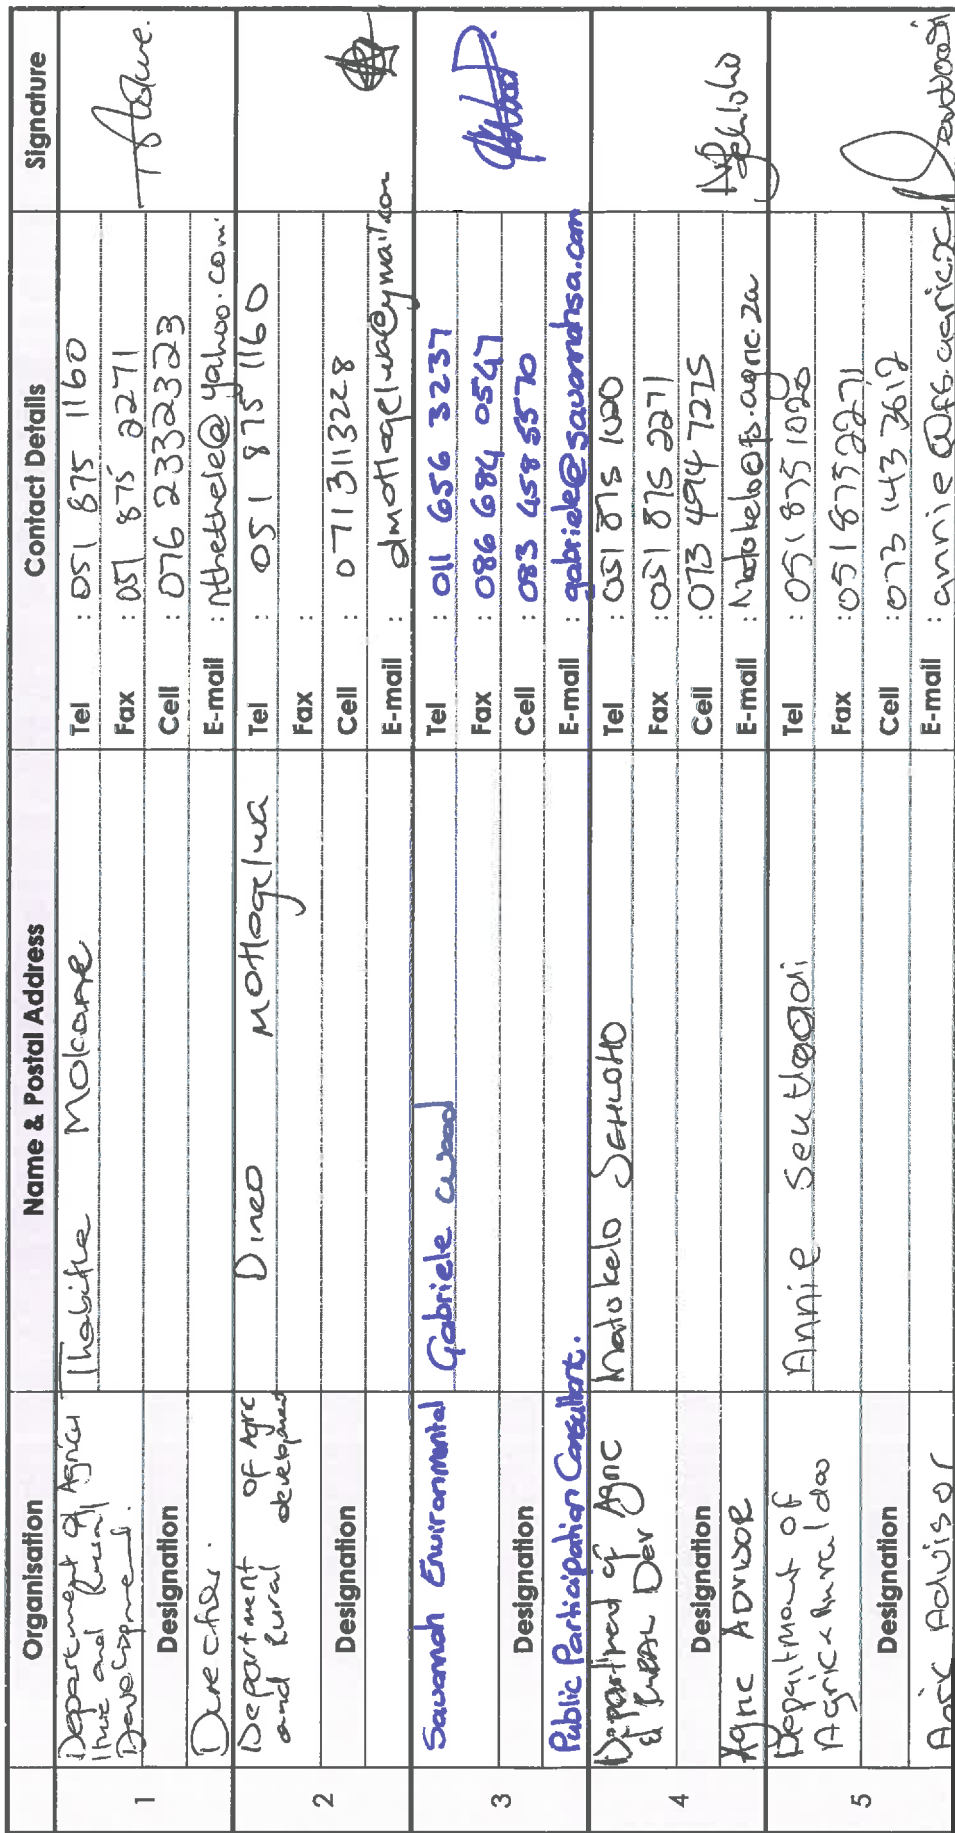 Organisation Name & Postal Address Contact Details Signature
1
Department of Agricul
ture and Rural
Development.
Designation
Director.
Thabithe Mokoane
Tel : 051 875 1160
Fax : 051 875 2271
Cell : 076 233 2323
E-mail : nthethele@yahoo.com
2
Department of Agric
and Rural development
Designation
Dineo Motlogelwa
Tel : 051 875 1160
Fax :
Cell : 0713113228
E-mail : dmotlogelwa@ymail.com
3
Savannah Environmental
Designation
Public Participation Consultant.
Gabriele Wood
Tel : 011 656 3237
Fax : 086 684 0547
Cell : 083 458 5570
E-mail : gabriele@savannahsa.com
4
Department of Agric
& RURAL Dev
Designation
Agric ADVISOR
Matokelo SEHLOHO
Tel : 051 875 1020
Fax : 051 875 2271
Cell : 073 494 7275
E-mail : Matokelo@fs.agric.za
5
Department of
Agric & Rural
Designation
Agric Advisor
Annie
Tel : 051 875 1020
Fax : 051 875 2271
Cell : 073 143 3612
E-mail : annie@fs.agric.za